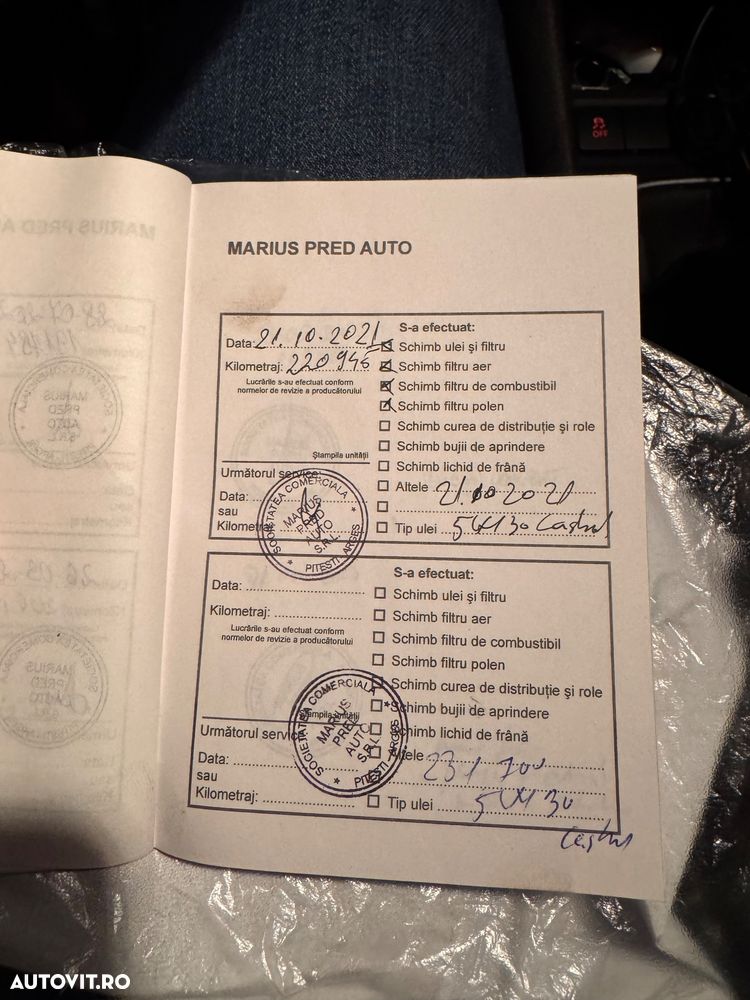 OFF
MARIUS PRED AUTO
Data: 21.10.2021
Kilometraj: 220 945
Lucrările s-au efectuat conform
normelor de revizie a producătorului
Ștampila unității
Următorul service:
Data:
sau
Kilometraj
S-a efectuat:
Schimb ulei și filtru
Schimb filtru aer
Schimb filtru de combustibil
Schimb filtru polen
Schimb curea de distribuție și role
Schimb bujii de aprindere
Schimb lichid de frână
Altele 21.10.2021
Tip ulei 5W30 Castrol
SOCIETATEA COMERCIALA
MARIUS
PRED
AUTO
S.R.L.
* PITESTI ARGES *
Data:
Kilometraj:
Lucrările s-au efectuat conform
normelor de revizie a producătorului
Ștampila unității
Următorul service
Data:
sau
Kilometraj:
S-a efectuat:
Schimb ulei și filtru
Schimb filtru aer
Schimb filtru de combustibil
Schimb filtru polen
Schimb curea de distribuție și role
Schimb bujii de aprindere
Schimb lichid de frână
Altele 231 700
Tip ulei 5W30
Castrol
SOCIETATEA COMERCIALA
MARIUS
PRED
AUTO
S.R.L.
* PITESTI ARGES *
AUTOVIT.RO